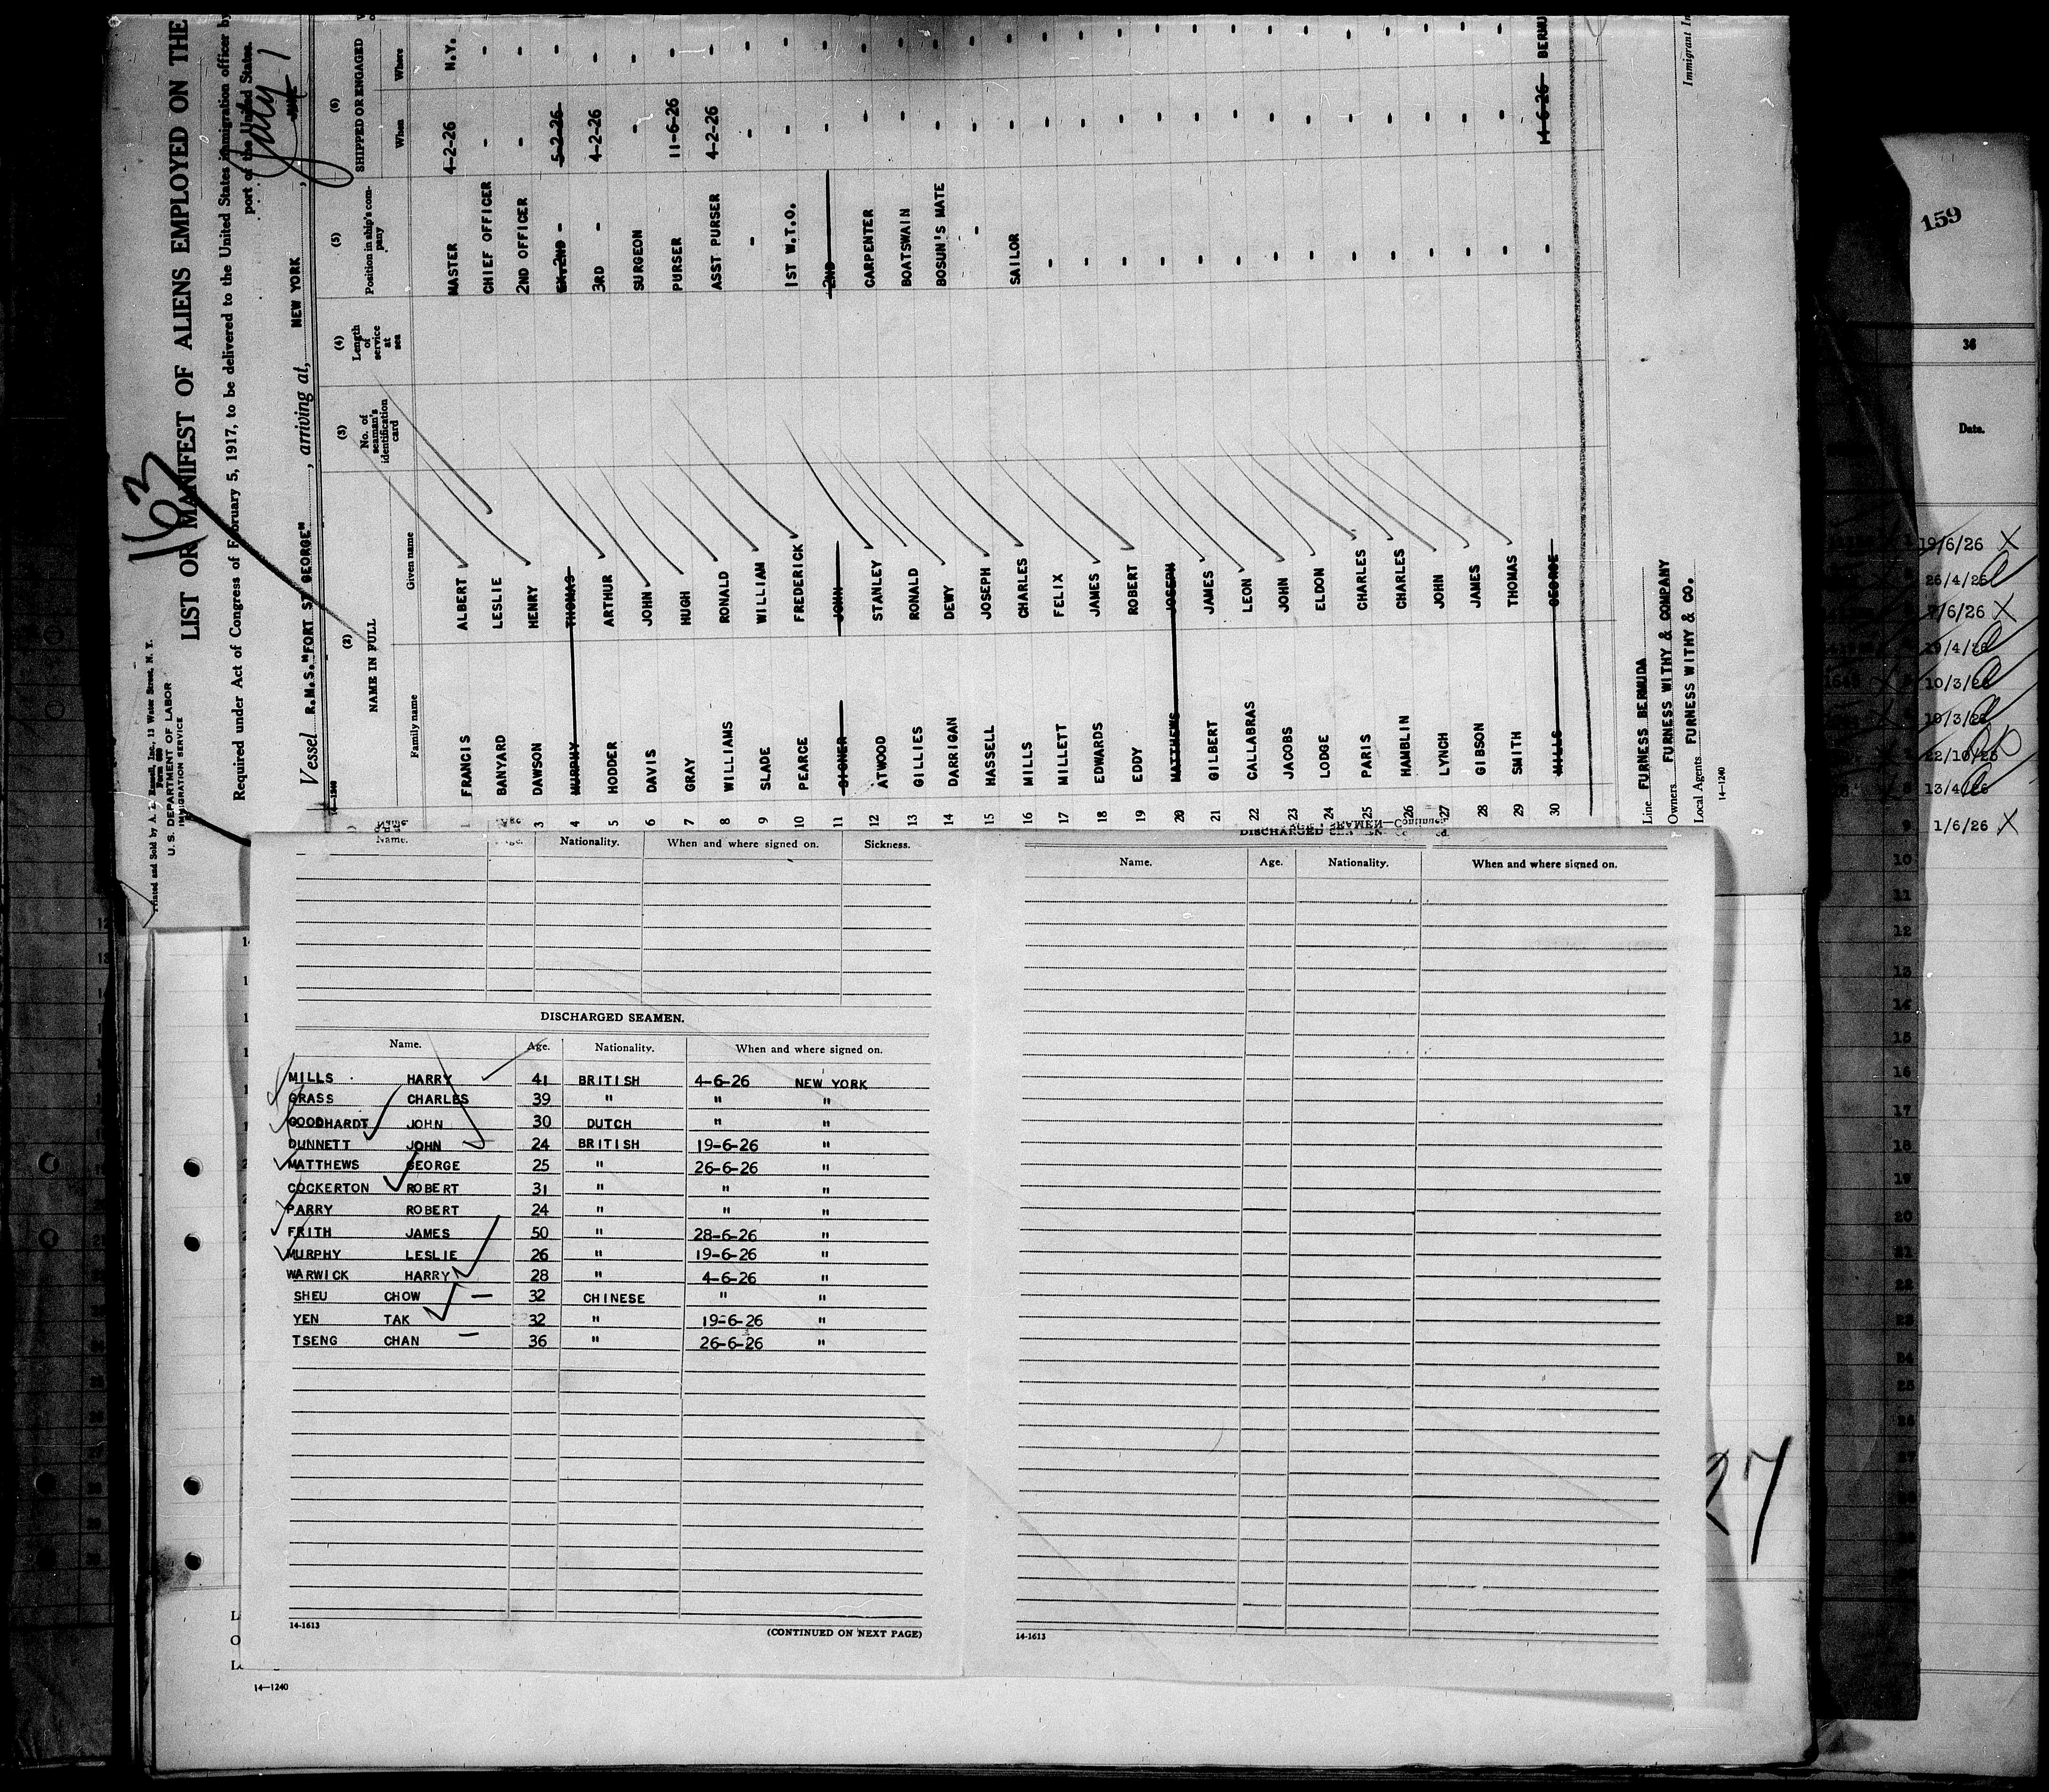 163
Printed and Sold by A. E. Russell, Inc., 13 Water Street, N. Y.
U. S. DEPARTMENT OF LABOR
IMMIGRATION SERVICE
LIST OR MANIFEST OF ALIENS EMPLOYED ON THE
Required under Act of Congress of February 5, 1917, to be delivered to the United States immigration officer by
port of the United States.
Vessel R.M.S. "FORT ST GEORGE", arriving at, NEW YORK, July 1
(2) (3) (4) (5) (6)
NAME IN FULL No. of seaman's identification card Length of service at sea Position in ship's company SHIPPED OR ENGAGED
Family name Given name When Where
FRANCIS ALBERT MASTER 4-2-26 N.Y.
BANYARD LESLIE CHIEF OFFICER - -
3 DAWSON HENRY 2ND OFFICER - -
4 MURPHY THOMAS EX 2ND - 5-2-26 -
5 HODDER ARTHUR 3RD - 4-2-26 -
6 DAVIS JOHN SURGEON - -
7 GRAY HUGH PURSER 11-6-26 -
8 WILLIAMS RONALD ASST PURSER 4-2-26 -
9 SLADE WILLIAM - - -
10 PEARCE FREDERICK 1ST W.T.O. - -
11 SIGNER JOHN 2ND - -
12 ATWOOD STANLEY CARPENTER - -
13 GILLIES RONALD BOATSWAIN - -
14 DARRIGAN DEWY BOSUN'S MATE - -
15 HASSELL JOSEPH - - -
16 MILLS CHARLES SAILOR - -
17 MILLETT FELIX - - -
18 EDWARDS JAMES - - -
19 EDDY ROBERT - - -
20 MATTHEWS JOSEPH - - -
21 GILBERT JAMES - - -
22 CALLABRAS LEON - - -
23 JACOBS JOHN - - -
24 LODGE ELDON - - -
25 PARIS CHARLES - - -
26 HAMBLIN CHARLES - - -
27 LYNCH JOHN - - -
28 GIBSON JAMES - - -
29 SMITH THOMAS - - -
30 MILLS GEORGE - 14-6-26 BERMU
Line FURNESS BERMUDA
Owners FURNESS WITHY & COMPANY
Local Agents FURNESS WITHY & CO.
Immigrant In
14-1240
Name. Age. Nationality. When and where signed on. Sickness.
DISCHARGED SEAMEN.
Name. Age. Nationality. When and where signed on.
MILLS HARRY 41 BRITISH 4-6-26 NEW YORK
GRASS CHARLES 39 " " "
GOODHARDT JOHN 30 DUTCH " "
DUNNETT JOHN 24 BRITISH 19-6-26 "
MATTHEWS GEORGE 25 " 26-6-26 "
COCKERTON ROBERT 31 " " "
PARRY ROBERT 24 " " "
FRITH JAMES 50 " 28-6-26 "
MURPHY LESLIE 26 " 19-6-26 "
WARWICK HARRY 28 " 4-6-26 "
SHEU CHOW 32 CHINESE " "
YEN TAK 32 " 19-6-26 "
TSENG CHAN 36 " 26-6-26 "
14-1613
(CONTINUED ON NEXT PAGE)
DISCHARGED SEAMEN—Continued
Name. Age. Nationality. When and where signed on.
14-1613
14-1240
27
159
36
Date.
19/6/26 X
26/4/26
7/6/26 X
19/4/26
10/3/26
10/3/26
22/10/25
13/4/26
9 1/6/26 X
10
11
12
13
14
15
16
17
18
19
20
21
22
23
24
25
26
27